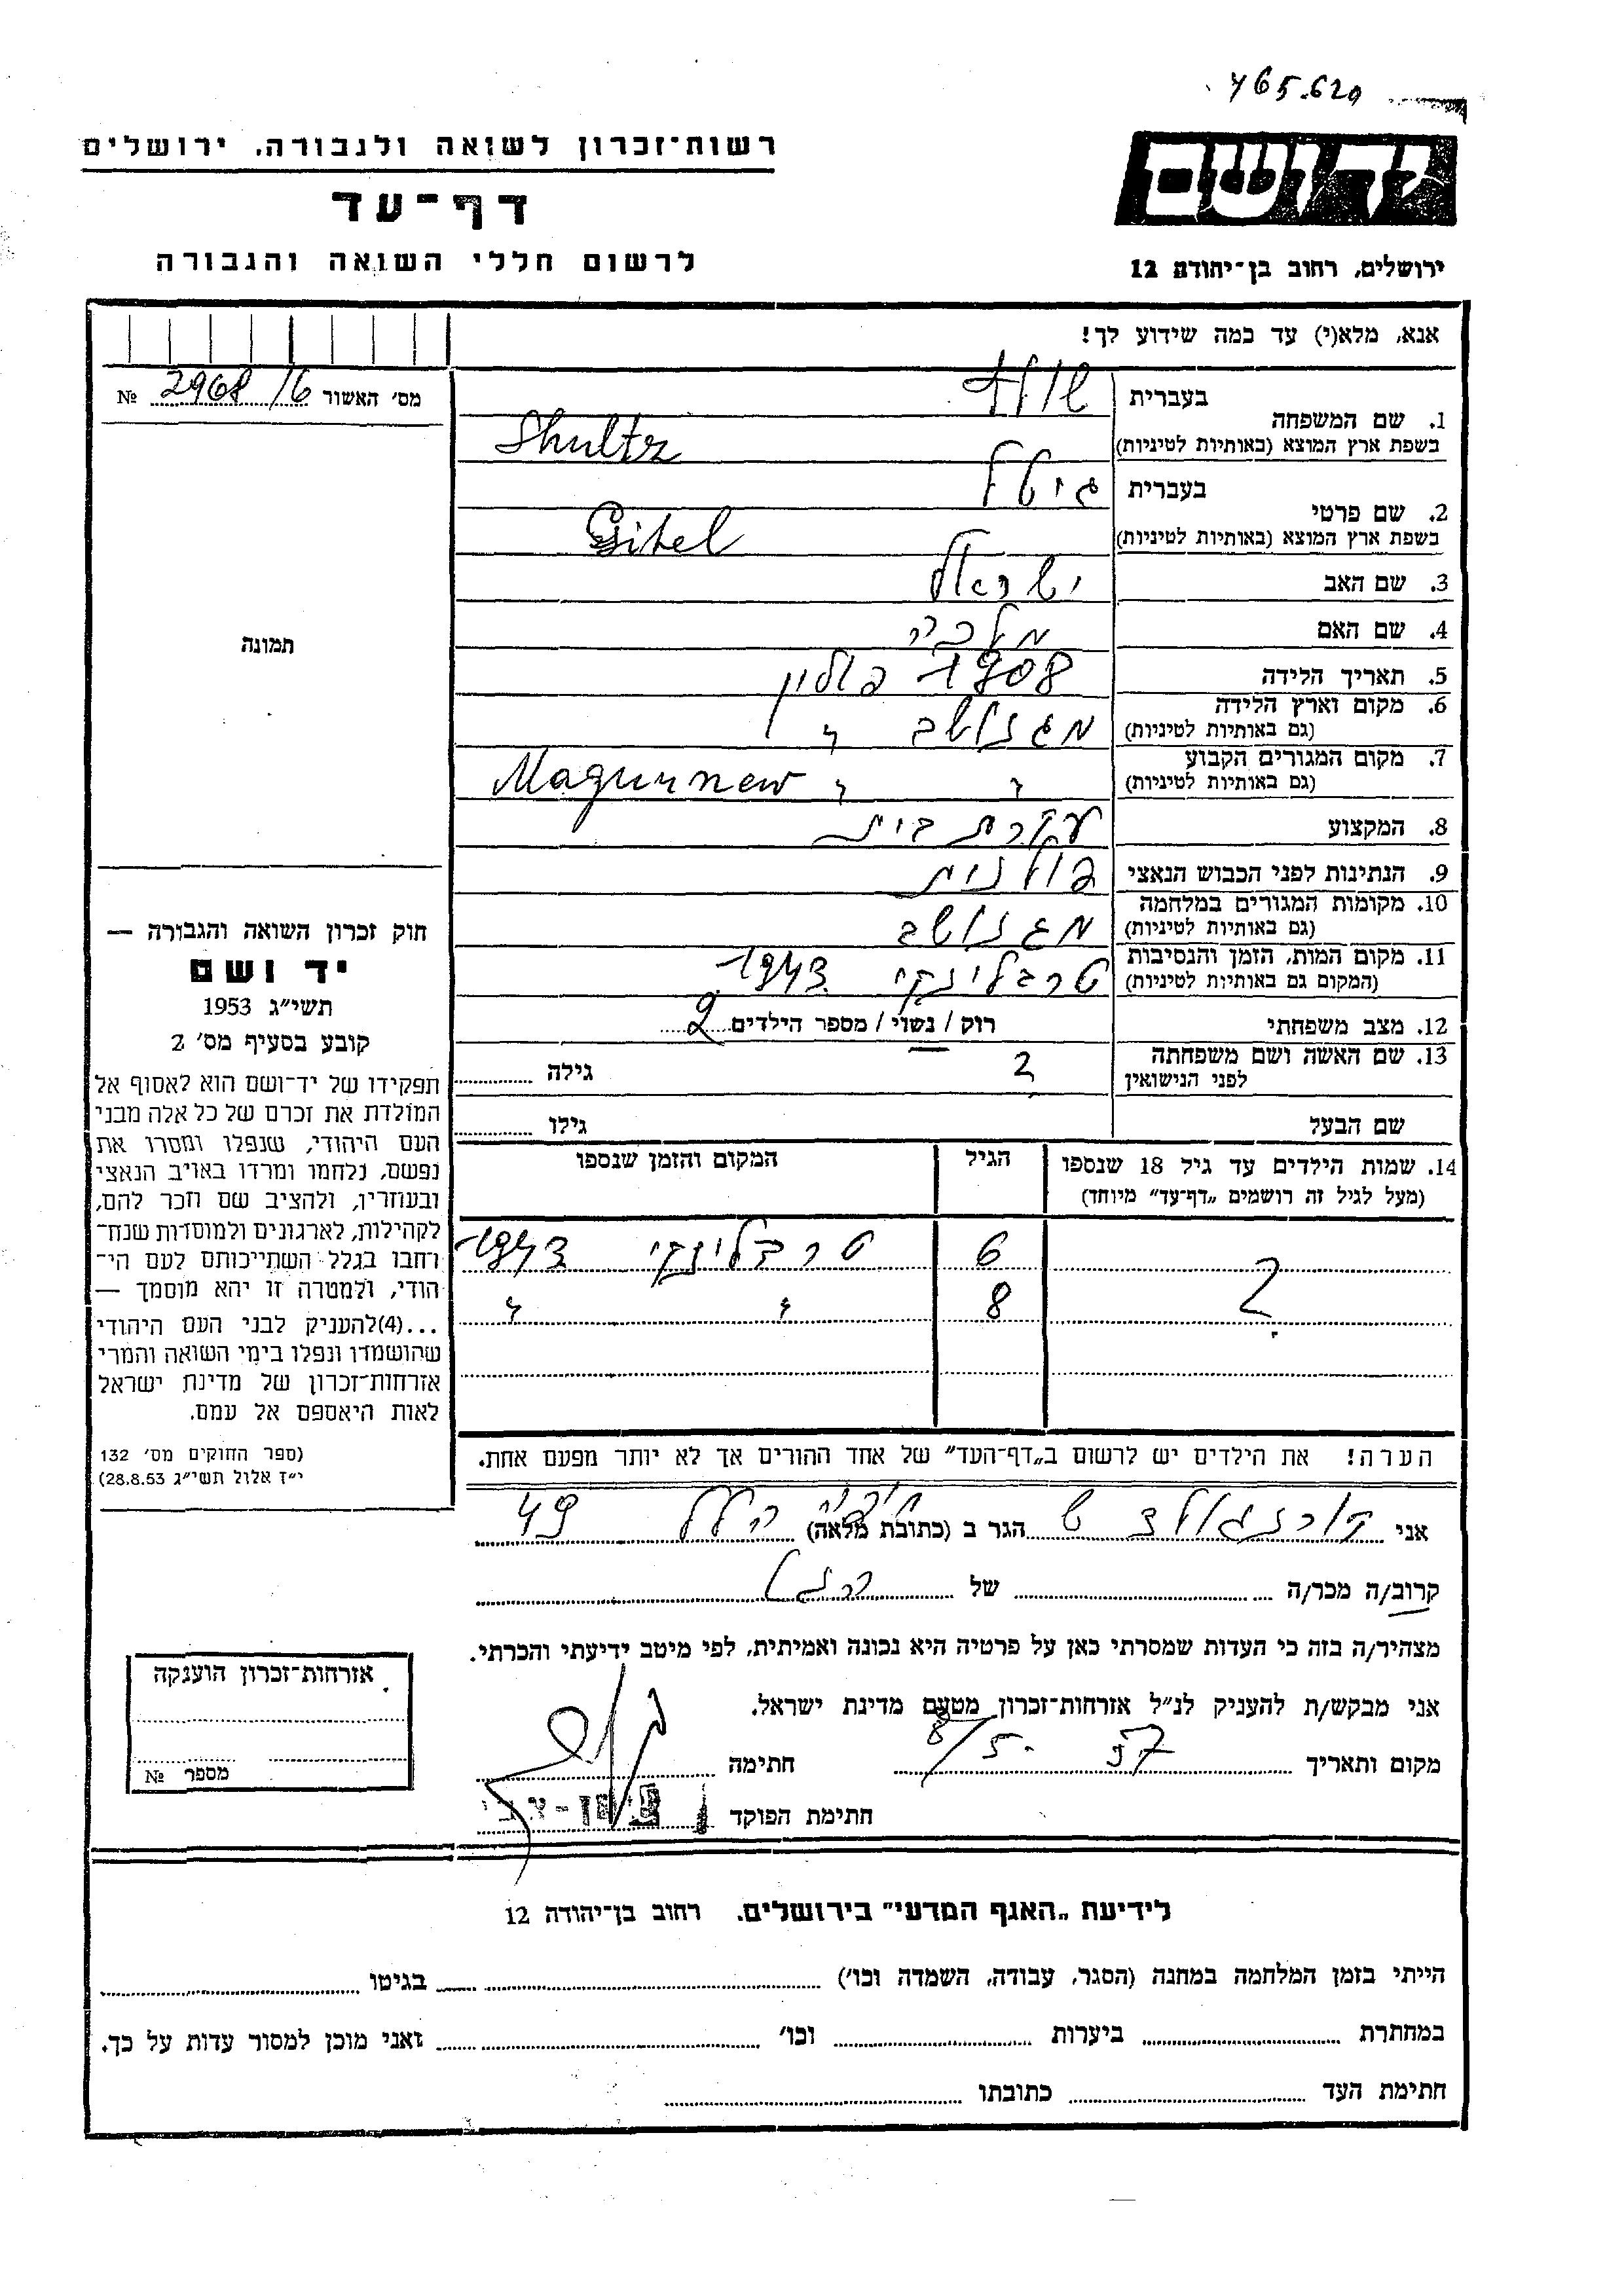 465.629
רשות־זכרון לשואה ולגבורה, ירושלים
יד ושם
דף־עד
לרשום חללי השואה והגבורה
ירושלים, רחוב בן־יהודה 12
אנא, מלא(י) עד כמה שידוע לך!
מס׳ האשור 2968/6 №
1. שם המשפחה
בעברית שולץ
בשפת ארץ המוצא (באותיות לטיניות) Shultz
2. שם פרטי
בעברית גיטל
בשפת ארץ המוצא (באותיות לטיניות) Gitel
3. שם האב ישראל
4. שם האם מלכה
5. תאריך הלידה 1908 פולין
6. מקום וארץ הלידה
(גם באותיות לטיניות) מגנושב "
7. מקום המגורים הקבוע
(גם באותיות לטיניות) " " Magunnew
8. המקצוע עקרת בית
9. הנתינות לפני הכבוש הנאצי פולנית
10. מקומות המגורים במלחמה
(גם באותיות לטיניות) מגנושב
11. מקום המות, הזמן והנסיבות
(המקום גם באותיות לטיניות) טרבלינקי 1943
12. מצב משפחתי רוק / נשוי / מספר הילדים 2
13. שם האשה ושם משפחתה
לפני הנישואין 2 גילה
שם הבעל גילו
14. שמות הילדים עד גיל 18 שנספו
(מעל לגיל זה רושמים „דף־עד” מיוחד)
הגיל
המקום והזמן שנספו
2 6 טרבלינקי 1943
8 " "
הערה! את הילדים יש לרשום ב„דף־העד” של אחד ההורים אך לא יותר מפעם אחת.
תמונה
חוק זכרון השואה והגבורה —
יד ושם
תשי״ג 1953
קובע בסעיף מס׳ 2
תפקידו של יד־ושם הוא לאסוף אל
המולדת את זכרם של כל אלה מבני
העם היהודי, שנפלו ומסרו את
נפשם, נלחמו ומרדו באויב הנאצי
ובעוזריו, ולהציב שם וזכר להם,
לקהילות, לארגונים ולמוסדות שנח־
רחבו בגלל השתייכותם לעם הי־
הודי, ולמטרה זו יהא מוסמך —
...(4)להעניק לבני העם היהודי
שהושמדו ונפלו בימי השואה והמרי
אזרחות־זכרון של מדינת ישראל
לאות היאספם אל עמם.
(ספר החוקים מס׳ 132
י״ז אלול תשי״ג 28.8.53)
אני קורנגולד ש הגר ב (כתובת מלאה) חיפה הלל 49
קרוב/ה מכר/ה של
מצהיר/ה בזה כי העדות שמסרתי כאן על פרטיה היא נכונה ואמיתית, לפי מיטב ידיעתי והכרתי.
אני מבקש/ת להעניק לנ״ל אזרחות־זכרון מטעם מדינת ישראל.
מקום ותאריך 8/5. 57 חתימה
חתימת הפוקד
אזרחות־זכרון הוענקה
מספר №
לידיעת „האגף המדעי” בירושלים. רחוב בן־יהודה 12
הייתי בזמן המלחמה במחנה (הסגר, עבודה, השמדה וכו׳) בגיטו
במחתרת ביערות וכו׳ ואני מוכן למסור עדות על כך.
חתימת העד כתובתו